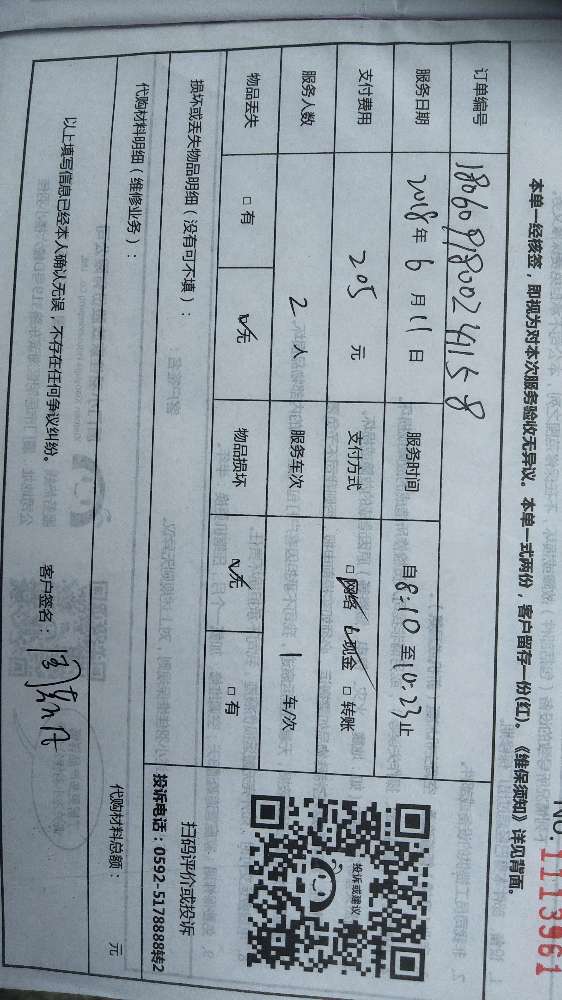 NO:1113961
本单一经核签，即视为对本次服务验收无异议。本单一式两份，客户留存一份(红)。《维保须知》详见背面。
订单编号 180609180024158
服务日期 2018年 6 月 11 日 服务时间 自8:10 至10:23止
支付费用 205 元 支付方式 □网络 □现金 □转账
服务人数 2 人 服务车次 1 车/次
物品丢失 □有 □无 物品损坏 □无 □有
损坏或丢失物品明细（没有可不填）：
代购材料明细（维修业务）：
代购材料总额： 元
投诉或建议
扫码评价或投诉
投诉电话：0592-5178888转2
以上填写信息已经本人确认无误，不存在任何争议纠纷。 客户签名：